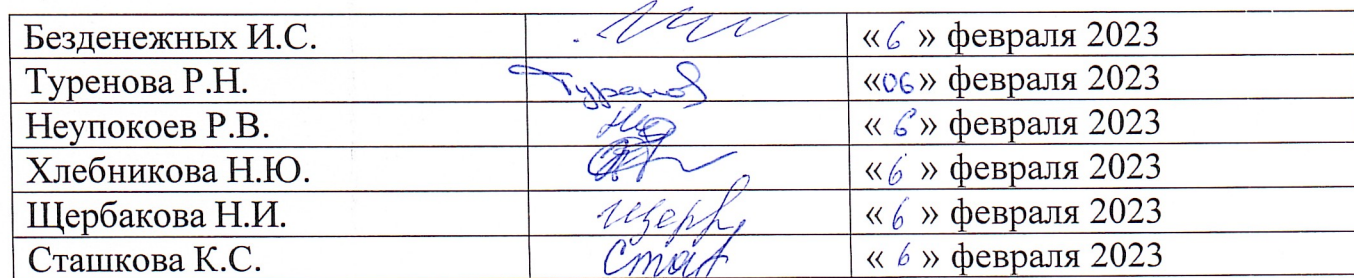 Безденежных И.С. «6» февраля 2023
Туренова Р.Н. Туренов «06» февраля 2023
Неупокоев Р.В. «6» февраля 2023
Хлебникова Н.Ю. «6» февраля 2023
Щербакова Н.И. «6» февраля 2023
Сташкова К.С. «6» февраля 2023